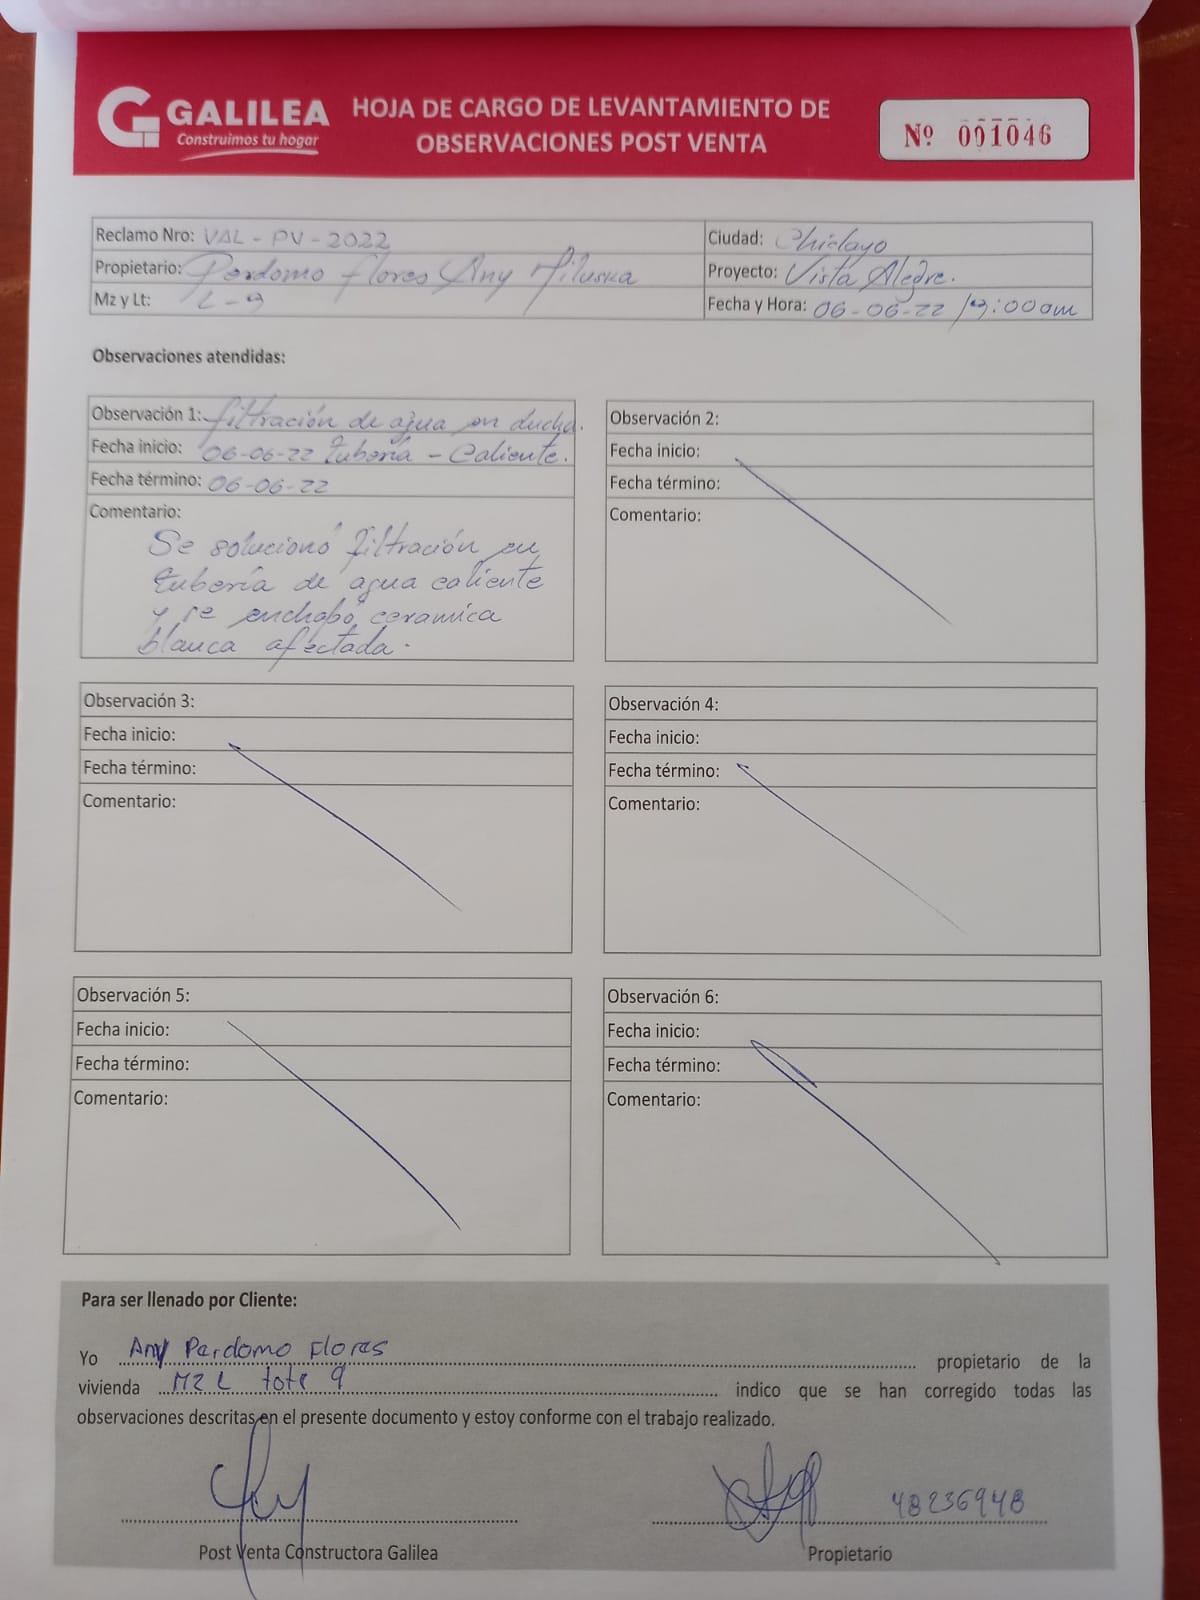 GALILEA
Construimos tu hogar
HOJA DE CARGO DE LEVANTAMIENTO DE
OBSERVACIONES POST VENTA
Nº 001046
Reclamo Nro: VAL - PV - 2022
Ciudad: Chiclayo
Propietario: Perdomo Flores Any Miluska
Proyecto: Vista Alegre.
Mz y Lt: L-9
Fecha y Hora: 06-06-22 / 9:00am
Observaciones atendidas:
Observación 1: filtración de agua en ducha.
Fecha inicio: 06-06-22 Tubería - Caliente.
Fecha término: 06-06-22
Comentario:
Se solucionó filtración en
tubería de agua caliente
y se enchapó ceramica
blanca afectada.
Observación 2:
Fecha inicio:
Fecha término:
Comentario:
Observación 3:
Fecha inicio:
Fecha término:
Comentario:
Observación 4:
Fecha inicio:
Fecha término:
Comentario:
Observación 5:
Fecha inicio:
Fecha término:
Comentario:
Observación 6:
Fecha inicio:
Fecha término:
Comentario:
Para ser llenado por Cliente:
Yo Any Perdomo Flores propietario de la
vivienda MZ L lote 9 indico que se han corregido todas las
observaciones descritas en el presente documento y estoy conforme con el trabajo realizado.
48236948
Post Venta Constructora Galilea
Propietario